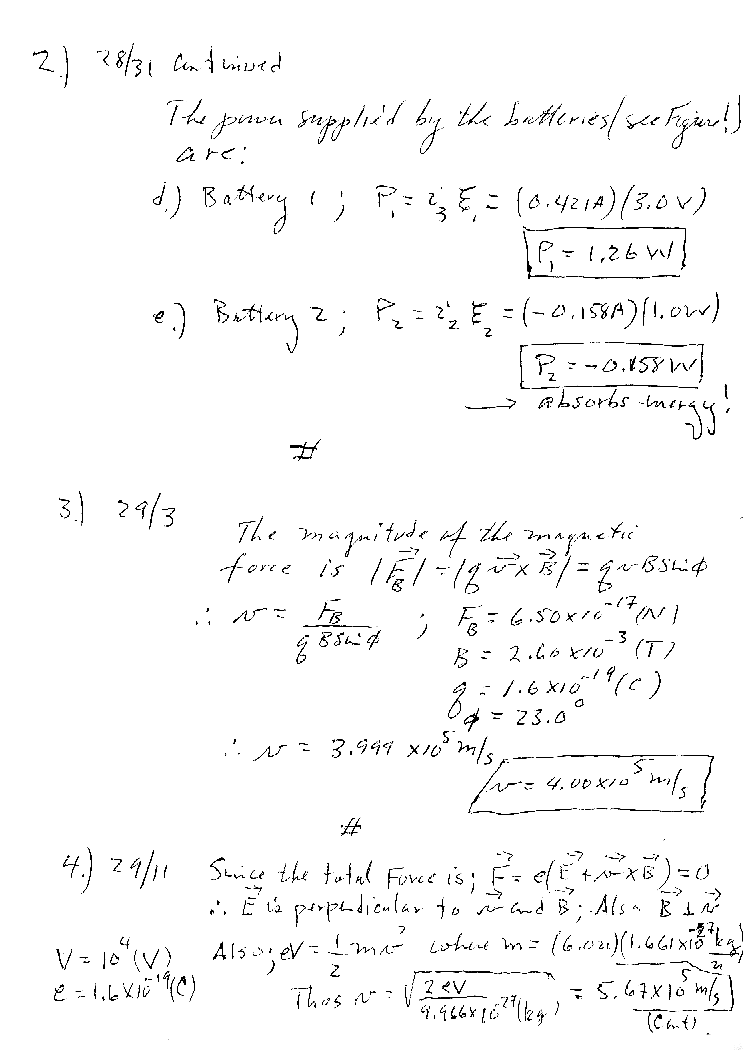 2.) 28/31 Continued
The power supplied by the batteries (see Figure!)
are:
d.) Battery 1 ; P₁ = i₃ ℰ₁ = (0.421A)(3.0 V)
P₁ = 1.26 W
e.) Battery 2 ; P₂ = i₂ ℰ₂ = (-0.158A)(1.0V)
P₂ = -0.158 W
→ absorbs energy!
#
3.) 29/3
The magnitude of the magnetic
force is |F⃗_B| = |q v⃗ × B⃗| = q v B sin φ
∴ v = F_B / (q B sin φ) ; F_B = 6.50 × 10⁻¹⁷ (N)
B = 2.60 × 10⁻³ (T)
q = 1.6 × 10⁻¹⁹ (C)
φ = 23.0°
∴ v = 3.999 × 10⁵ m/s
v = 4.00 × 10⁵ m/s
#
4.) 29/11 Since the total Force is; F⃗ = e(E⃗ + v⃗ × B⃗) = 0
∴ E⃗ is perpendicular to v⃗ and B⃗; Also B⃗ ⊥ v⃗
V = 10⁴ (V) Also; eV = 1/2 mv² where m = (6.0u)(1.661×10⁻²⁷ kg/u)
e = 1.6×10⁻¹⁹(C) Thus v = √(2 eV / 9.966×10⁻²⁷(kg)) = 5.67×10⁵ m/s
(Cont)